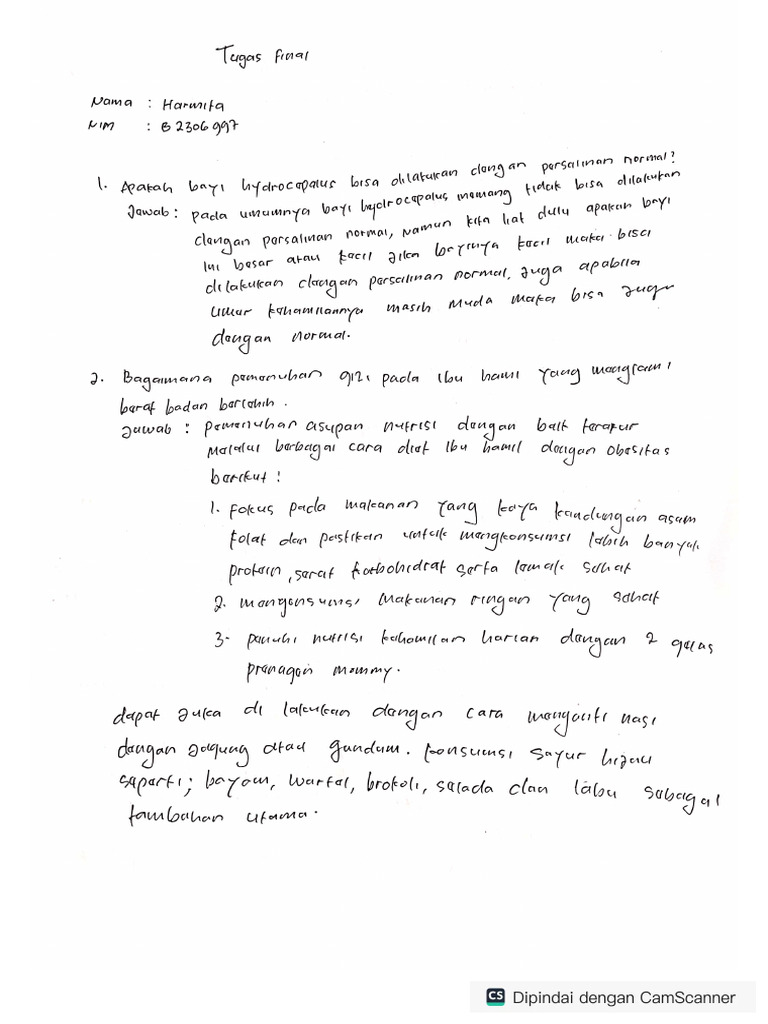 Tugas Final
Nama : Harmita
NIM : B2306997
1. Apakah bayi hydrocepalus bisa dilakukan dengan persalinan normal?
Jawab : pada umumnya bayi hydrocepalus memang tidak bisa dilakukan
dengan persalinan normal, namun kita liat dulu apakah bayi
ini besar atau kecil jika bayinya kecil maka bisa
dilakukan dengan persalinan normal, juga apabila
umur kehamilannya masih muda maka bisa juga
dengan normal.
2. Bagaimana pemenuhan gizi pada ibu hamil yang mengalami
berat badan berlebih.
Jawab : pemenuhan asupan nutrisi dengan baik teratur
Melalui berbagai cara diet ibu hamil dengan obesitas
berikut :
1. Fokus pada makanan yang kaya kandungan asam
folat dan pastikan untuk mengkonsumsi lebih banyak
protein, serat karbohidrat serta lemak sehat
2. mengonsumsi makanan ringan yang sehat
3. penuhi nutrisi kehamilan harian dengan 2 gelas
prenagen mommy.
dapat juka di lakukan dengan cara menganti nasi
dengan jagung atau gandum. konsumsi sayur hijau
seperti; bayam, wartel, brokoli, selada dan labu sebagai
tambahan utama.
Dipindai dengan CamScanner